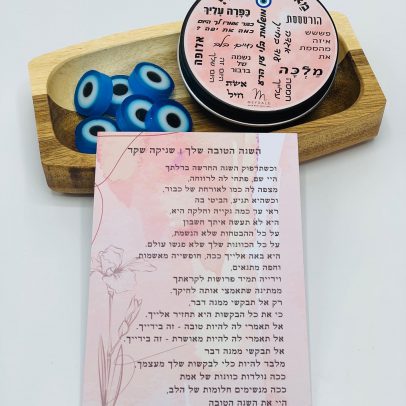 כפרה עליך
הורסססת
פששש
איזה
מהממת
את
מלכה
חיים שלי
נשמה
של
בדבור
אשת
חיל
אלופה
השנה הטובה שלך | שניקה שקד
וכשתדפוק השנה החדשה בדלתך
היי שם, פתחי לה לרווחה,
מצפה לה כמו לאורחת של כבוד,
וכשהיא תגיע, הביטי בה
ראי עד כמה נקייה וחלקה היא,
היא לא תעשה איתך חשבון
על כל ההבטחות שלא הגשמת,
על כל הכוונות שלך שלא פגשו עולם.
היא באה אלייך ככה, חופשייה מאשמות,
וחפה מתנאים,
וידייה תמיד פרושות לקראתך
ממתינה שתאמצי אותה לחיקך.
רק אל תבקשי ממנה דבר,
כי את כל הבקשות היא תחזיר אלייך.
אל תאמרי לה להיות טובה - זה בידייך.
אל תאמרי לה להיות מאושרת - זה בידייך.
אל תבקשי ממנה דבר
מלבד להיות כלי לבקשות שלך מעצמך.
ככה נולדות כוונות של אמת
ככה מגשימים חלומות של הלב,
היי את השנה הטובה